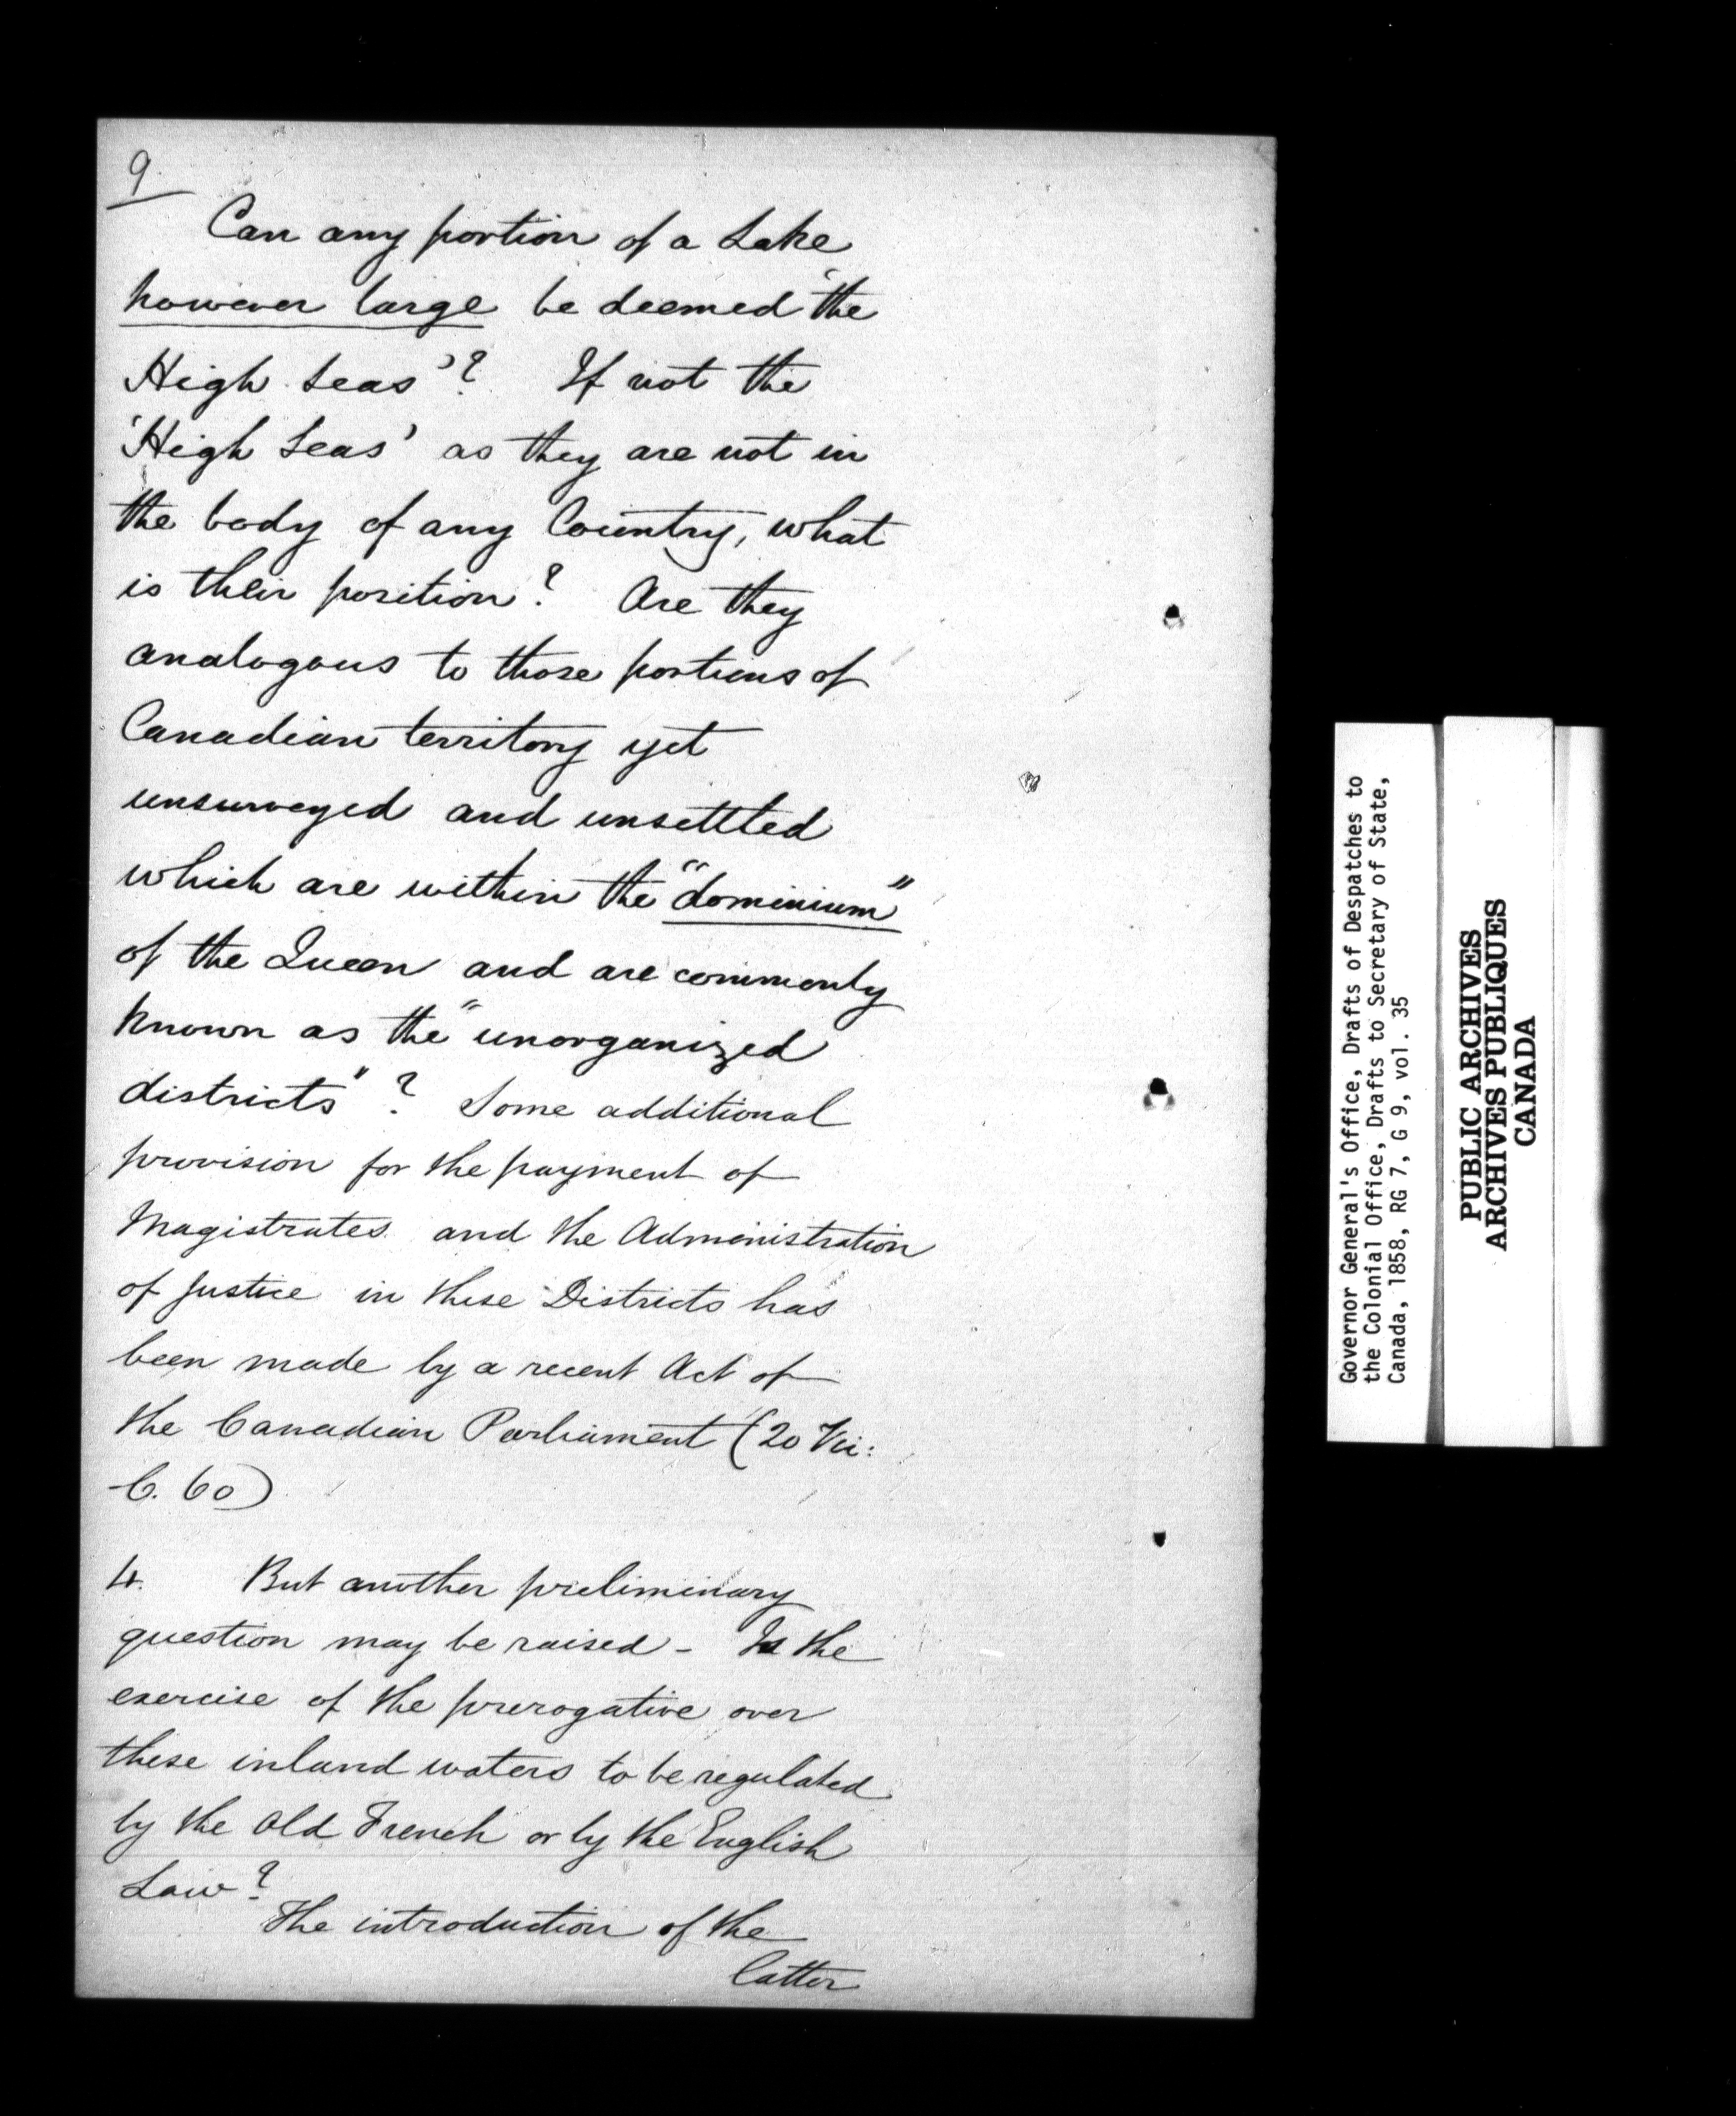 9.
Can any portion of a Lake
however large be deemed 'the
High Seas'? If not the
'High Seas' as they are not in
the body of any Country, what
is their position? Are they
analogous to those portions of
Canadian territory yet
unsurveyed and unsettled
which are within the "dominium"
of the Queen and are commonly
known as the "unorganized
districts"? Some additional
provision for the payment of
Magistrates and the Administration
of Justice in these Districts has
been made by a recent Act of
the Canadian Parliament (20 Vic:
C. 60)
4. But another preliminary
question may be raised - Is the
exercise of the prerogative over
these inland waters to be regulated
by the Old French or by the English
Law?
The introduction of the
latter
Governor General's Office, Drafts of Despatches to
the Colonial Office, Drafts to Secretary of State,
Canada, 1858, RG 7, G 9, vol. 35
PUBLIC ARCHIVES
ARCHIVES PUBLIQUES
CANADA